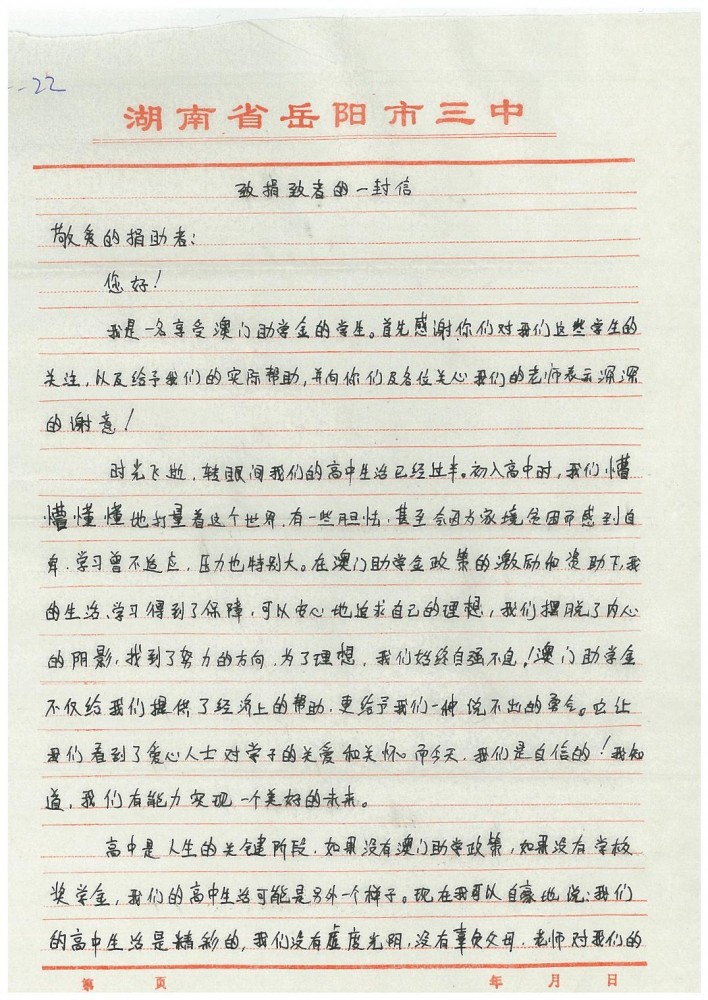 --22
湖南省岳阳市三中
致捐致者的一封信
敬爱的捐助者:
您好!
我是一名享受澳门助学金的学生。首先感谢你们对我们这些学生的
关注,以及给予我们的实际帮助,并向你们及各位关心我们的老师表示深深
的谢意!
时光飞逝,转眼间我们的高中生活已经过半。初入高中时,我们懵
懵懂懂地打量着这个世界,有一些胆怯,甚至会因为家境贫困而感到自
卑,学习曾不适应,压力也特别大。在澳门助学金政策的激励和资助下,我
的生活、学习得到了保障,可以安心地追求自己的理想,我们摆脱了内心
的阴影,找到了努力的方向,为了理想,我们始终自强不息!澳门助学金
不仅给我们提供了经济上的帮助,更给予我们一种说不出的勇气。它让
我们看到了爱心人士对学子的关爱和关怀而今天,我们是自信的!我知
道,我们有能力实现一个美好的未来。
高中是人生的关键阶段,如果没有澳门助学政策,如果没有学校
奖学金,我们的高中生活可能是另外一个样子。现在我可以自豪地说:我们
的高中生活是精彩的,我们没有虚度光阴,没有辜负父母、老师对我们的
第 页 年 月 日